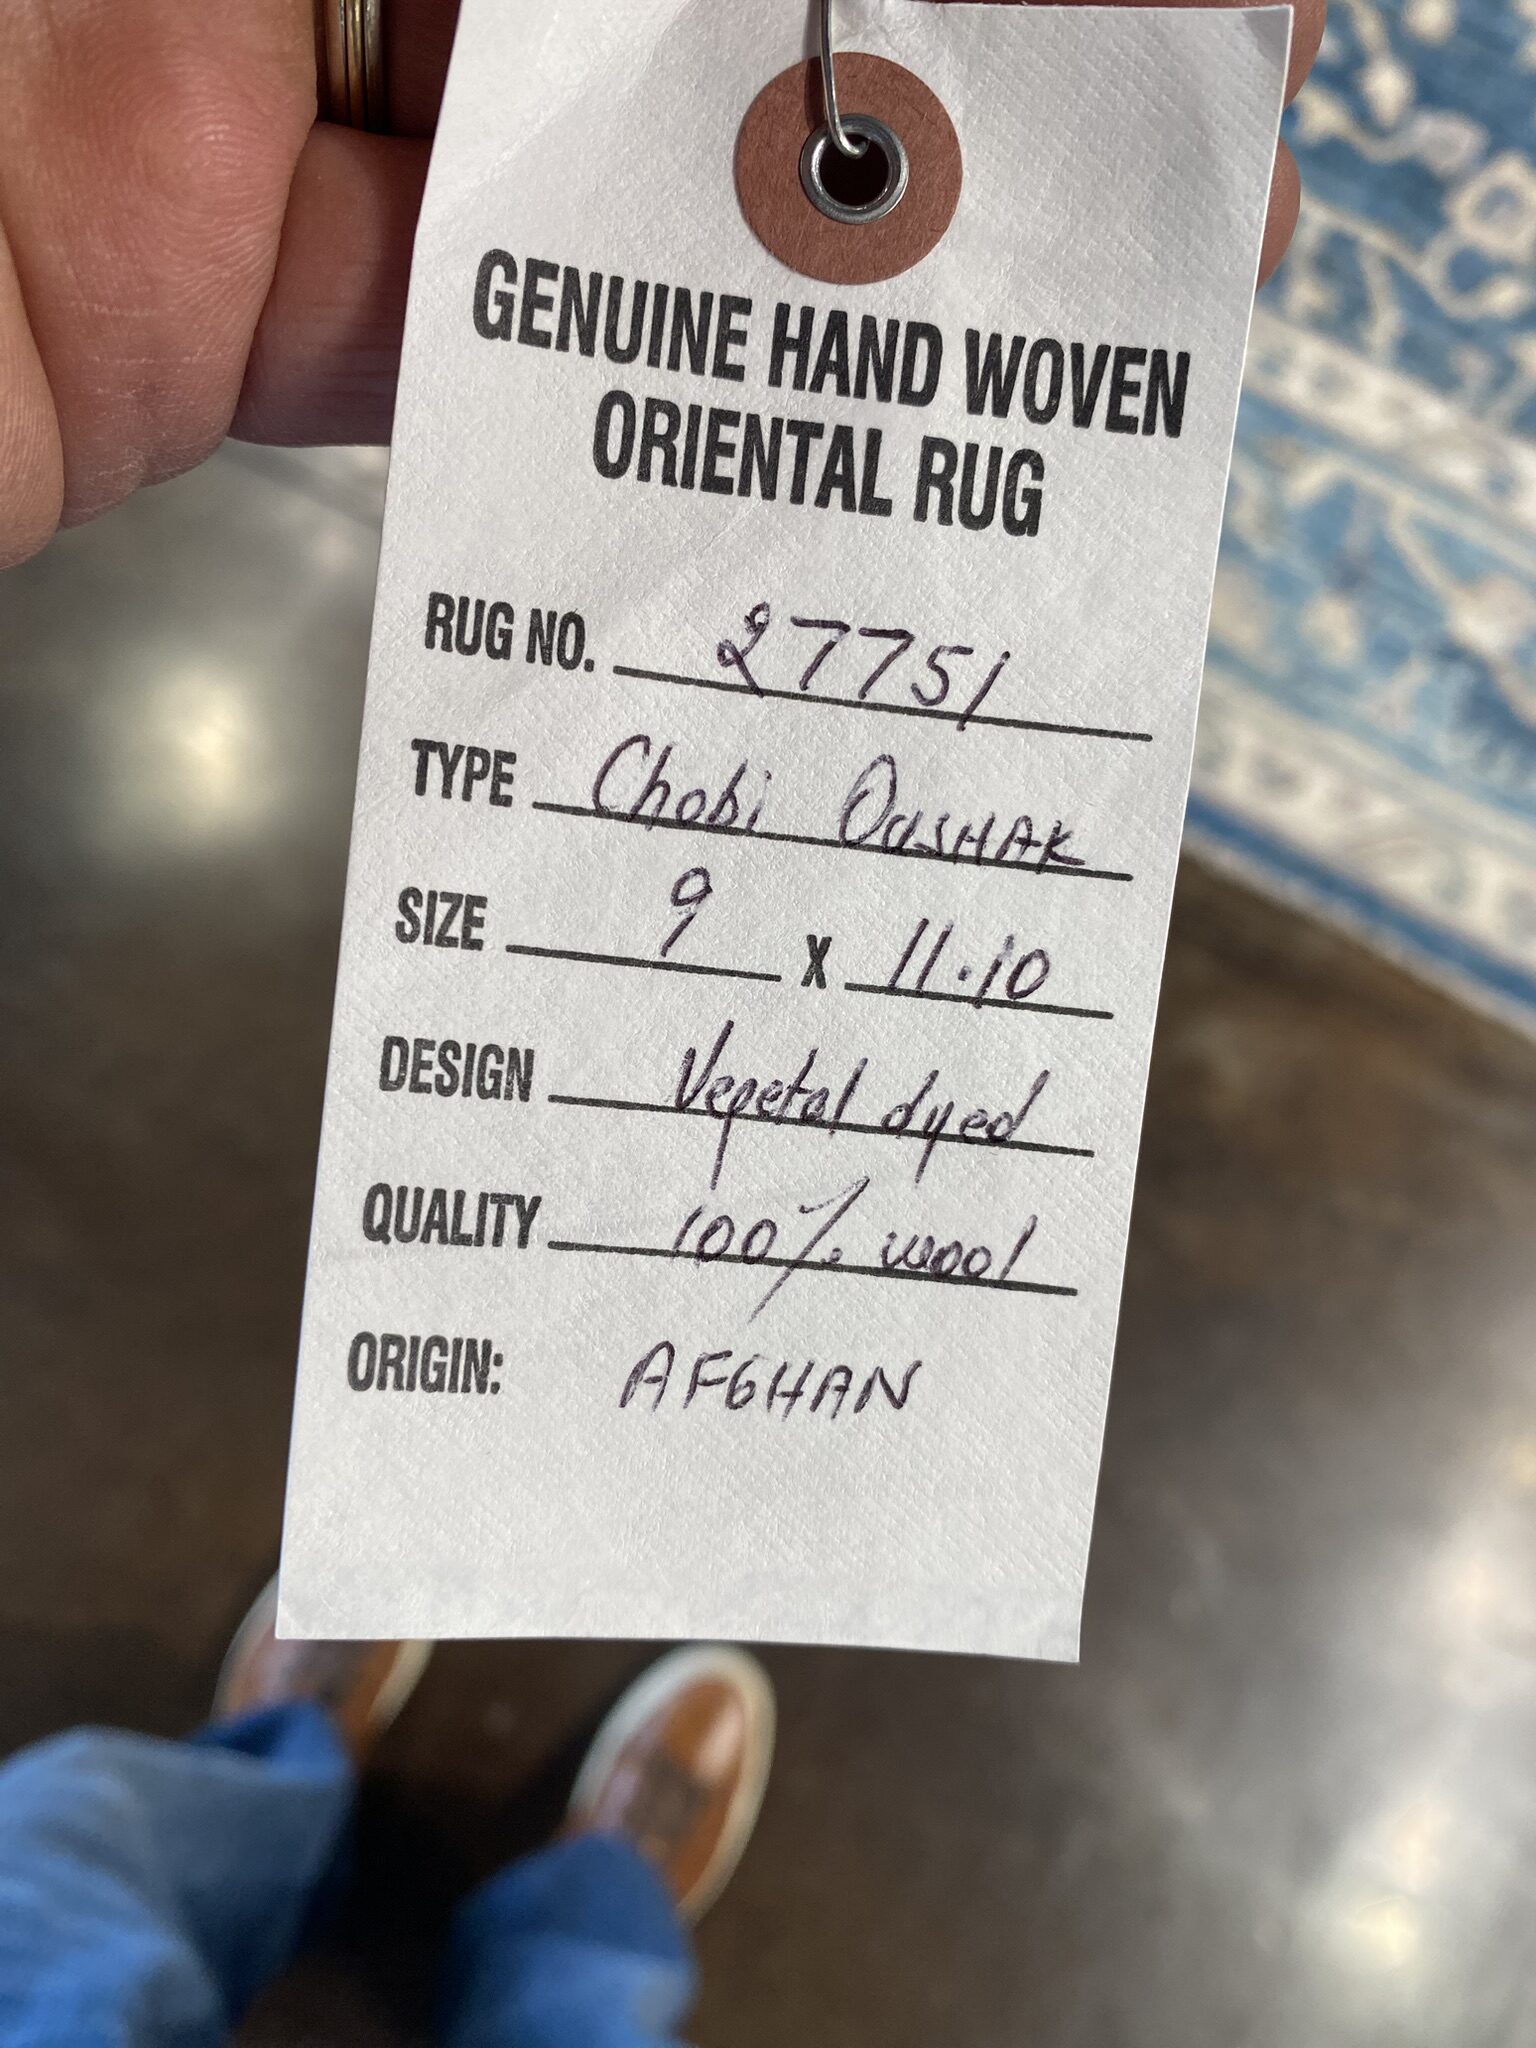 GENUINE HAND WOVEN
ORIENTAL RUG
RUG NO. 27751
TYPE Chobi OUSHAK
SIZE 9 X 11.10
DESIGN Vegetal dyed
QUALITY 100% wool
ORIGIN: AFGHAN